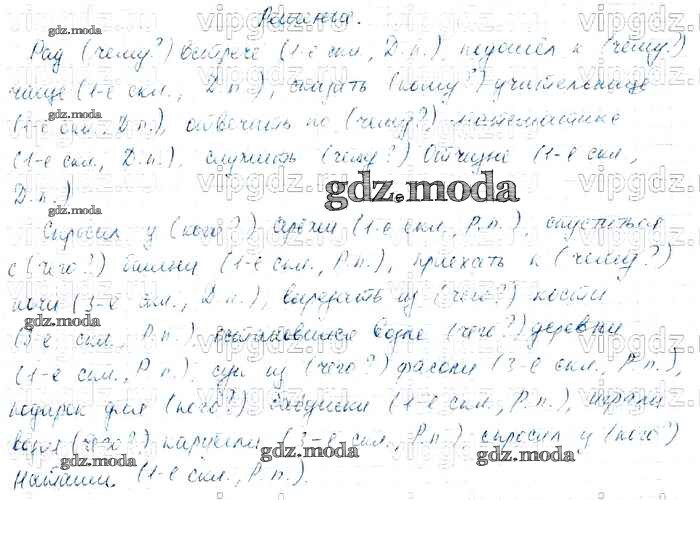 Решение.
Рад (чему?) встрече (1-е скл., Д.п.), подошёл к (чему?)
чаще (1-е скл., Д.п.), сказать (кому?) учительнице
(1-е скл., Д.п.), отвечать по (чему?) математике
(1-е скл., Д.п.), служить (чему?) Отчизне (1-е скл.,
Д.п.)
Спросил у (кого?) Серёжи (1-е скл., Р.п.), спуститься
с (чего?) башни (1-е скл., Р.п.), приехать к (чему?)
ночи (3-е скл., Д.п.), вырезать из (чего?) кости
(3-е скл., Р.п.), остановился возле (чего?) деревни
(1-е скл., Р.п.), суп из (чего?) фасоли (3-е скл., Р.п.),
подарок для (кого?) бабушки (1-е скл., Р.п.), играли
возле (чего?) карусели (3-е скл., Р.п.), спросил у (кого?)
Наташи (1-е скл., Р.п.).
gdz.moda
vipgdz.ru